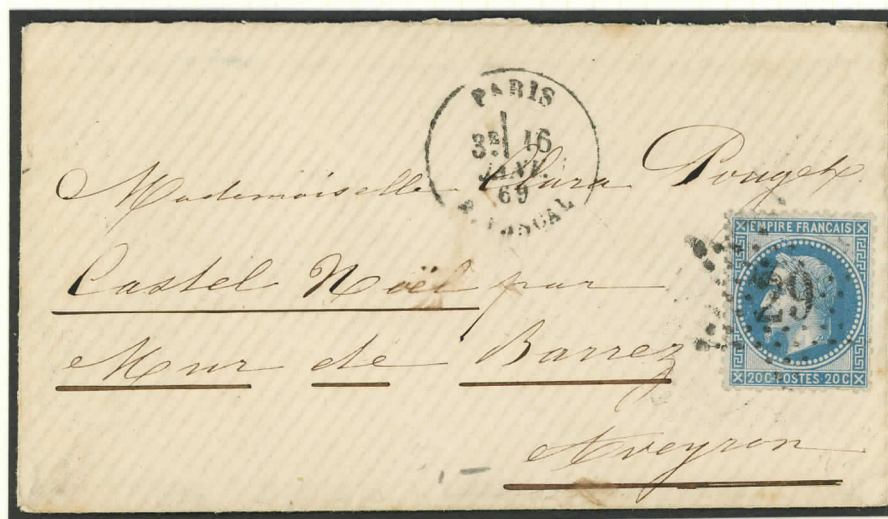 PARIS
3E 16
JANV.
69
R. PASCAL
Mademoiselle Clara Pouget
Castel Noël par
Mur de Barrez
Aveyron
EMPIRE FRANCAIS
29
20 C POSTES 20 C